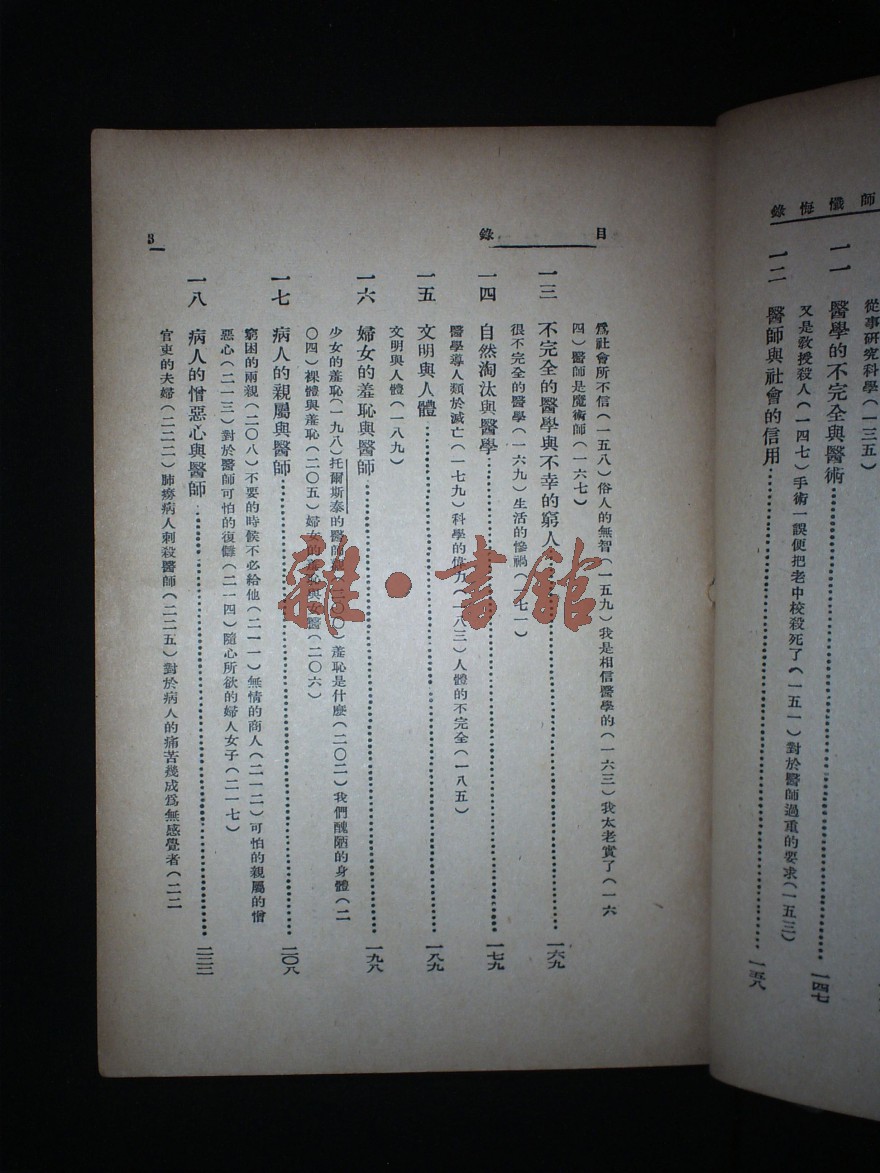 師懺悔錄
從事研究科學(一三五)
一一 醫學的不完全與醫術……一四七
又是教授殺人(一四七)手術一誤便把老中校殺死了(一五一)對於醫師過重的要求(一五三)
一二 醫師與社會的信用……一五八
目錄
爲社會所不信(一五八)俗人的無智(一五九)我是相信醫學的(一六三)我太老實了(一六
四)醫師是魔術師(一六七)
一三 不完全的醫學與不幸的窮人……一六九
很不完全的醫學(一六九)生活的慘禍(一七一)
一四 自然淘汰與醫學……一七九
醫學導人類於滅亡(一七九)科學的偉力(一八三)人體的不完全(一八五)
一五 文明與人體……一八九
文明與人體(一八九)
一六 婦女的羞恥與醫師……一九八
少女的羞恥(一九八)托爾斯泰的醫師(二〇〇)羞恥是什麼(二〇二)我們醜陋的身體(二
〇四)裸體與羞恥(二〇五)婦女的羞恥與女醫(二〇六)
一七 病人的親屬與醫師……二〇八
窮困的兩親(二〇八)不要的時候不必給他(二一一)無情的商人(二一二)可怕的親屬的憎
惡心(二一三)對於醫師可怕的復讎(二一四)隨心所欲的婦人女子(二一七)
一八 病人的憎惡心與醫師……二二二
官吏的夫婦(二二二)肺癆病人刺殺醫師(二二五)對於病人的痛苦幾成爲無感覺者(二二
3
雜·書館